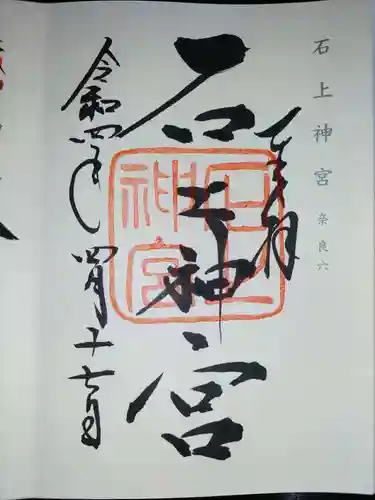 石上神宮 奈良六
奉拝
石上神宮
石上
神宮
令和四年
四月十七日